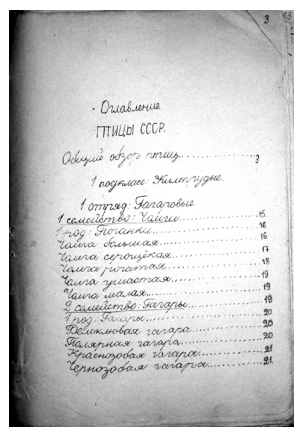 3
Оглавление
ПТИЦЫ СССР.
Общий обзор птиц 3
1 подкласс: Килегрудые.
1 отряд: Гагаровые
1 семейство: Чомги 15
1 род: Поганки 16
Чомга большая 16
Чомга серощекая 17
Чомга рогатая 18
Чомга ушастая 19
Чомга малая 19
2 семейство: Гагары 19
1 род: Гагары 20
Белоклювая гагара 20
Полярная гагара 20
Краснозобая гагара 21
Чернозобая гагара 21